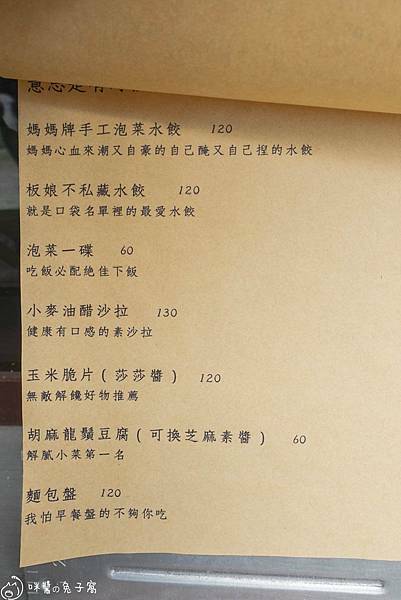 媽媽牌手工泡菜水餃 120
媽媽心血來潮又自豪的自己醃又自己捏的水餃
板娘不私藏水餃 120
就是口袋名單裡的最愛水餃
泡菜一碟 60
吃飯必配絕佳下飯
小麥油醋沙拉 130
健康有口感的素沙拉
玉米脆片(莎莎醬) 120
無敵解饞好物推薦
胡麻龍鬚豆腐(可換芝麻素醬) 60
解膩小菜第一名
麵包盤 120
我怕早餐盤的不夠你吃
咪醬の兔子窩